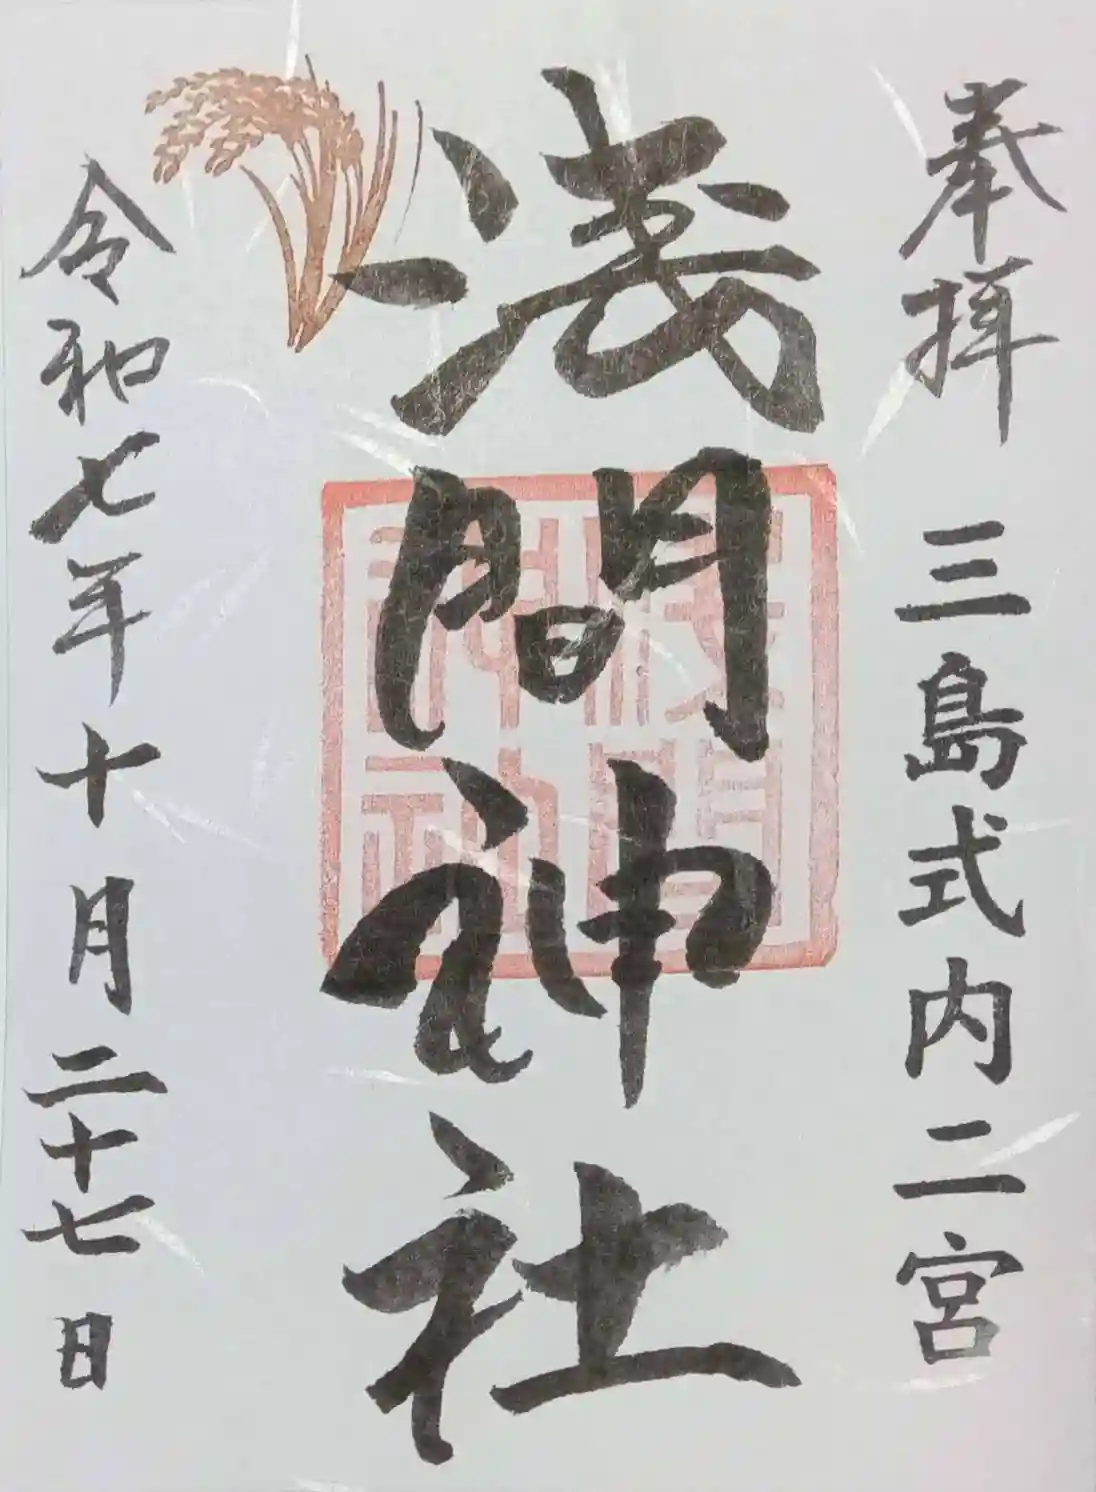 奉拝
三島式内二宮
浅間神社
浅間
神社
令和七年十月二十七日